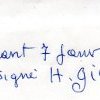 ant 7 Janv
signé H. Gi